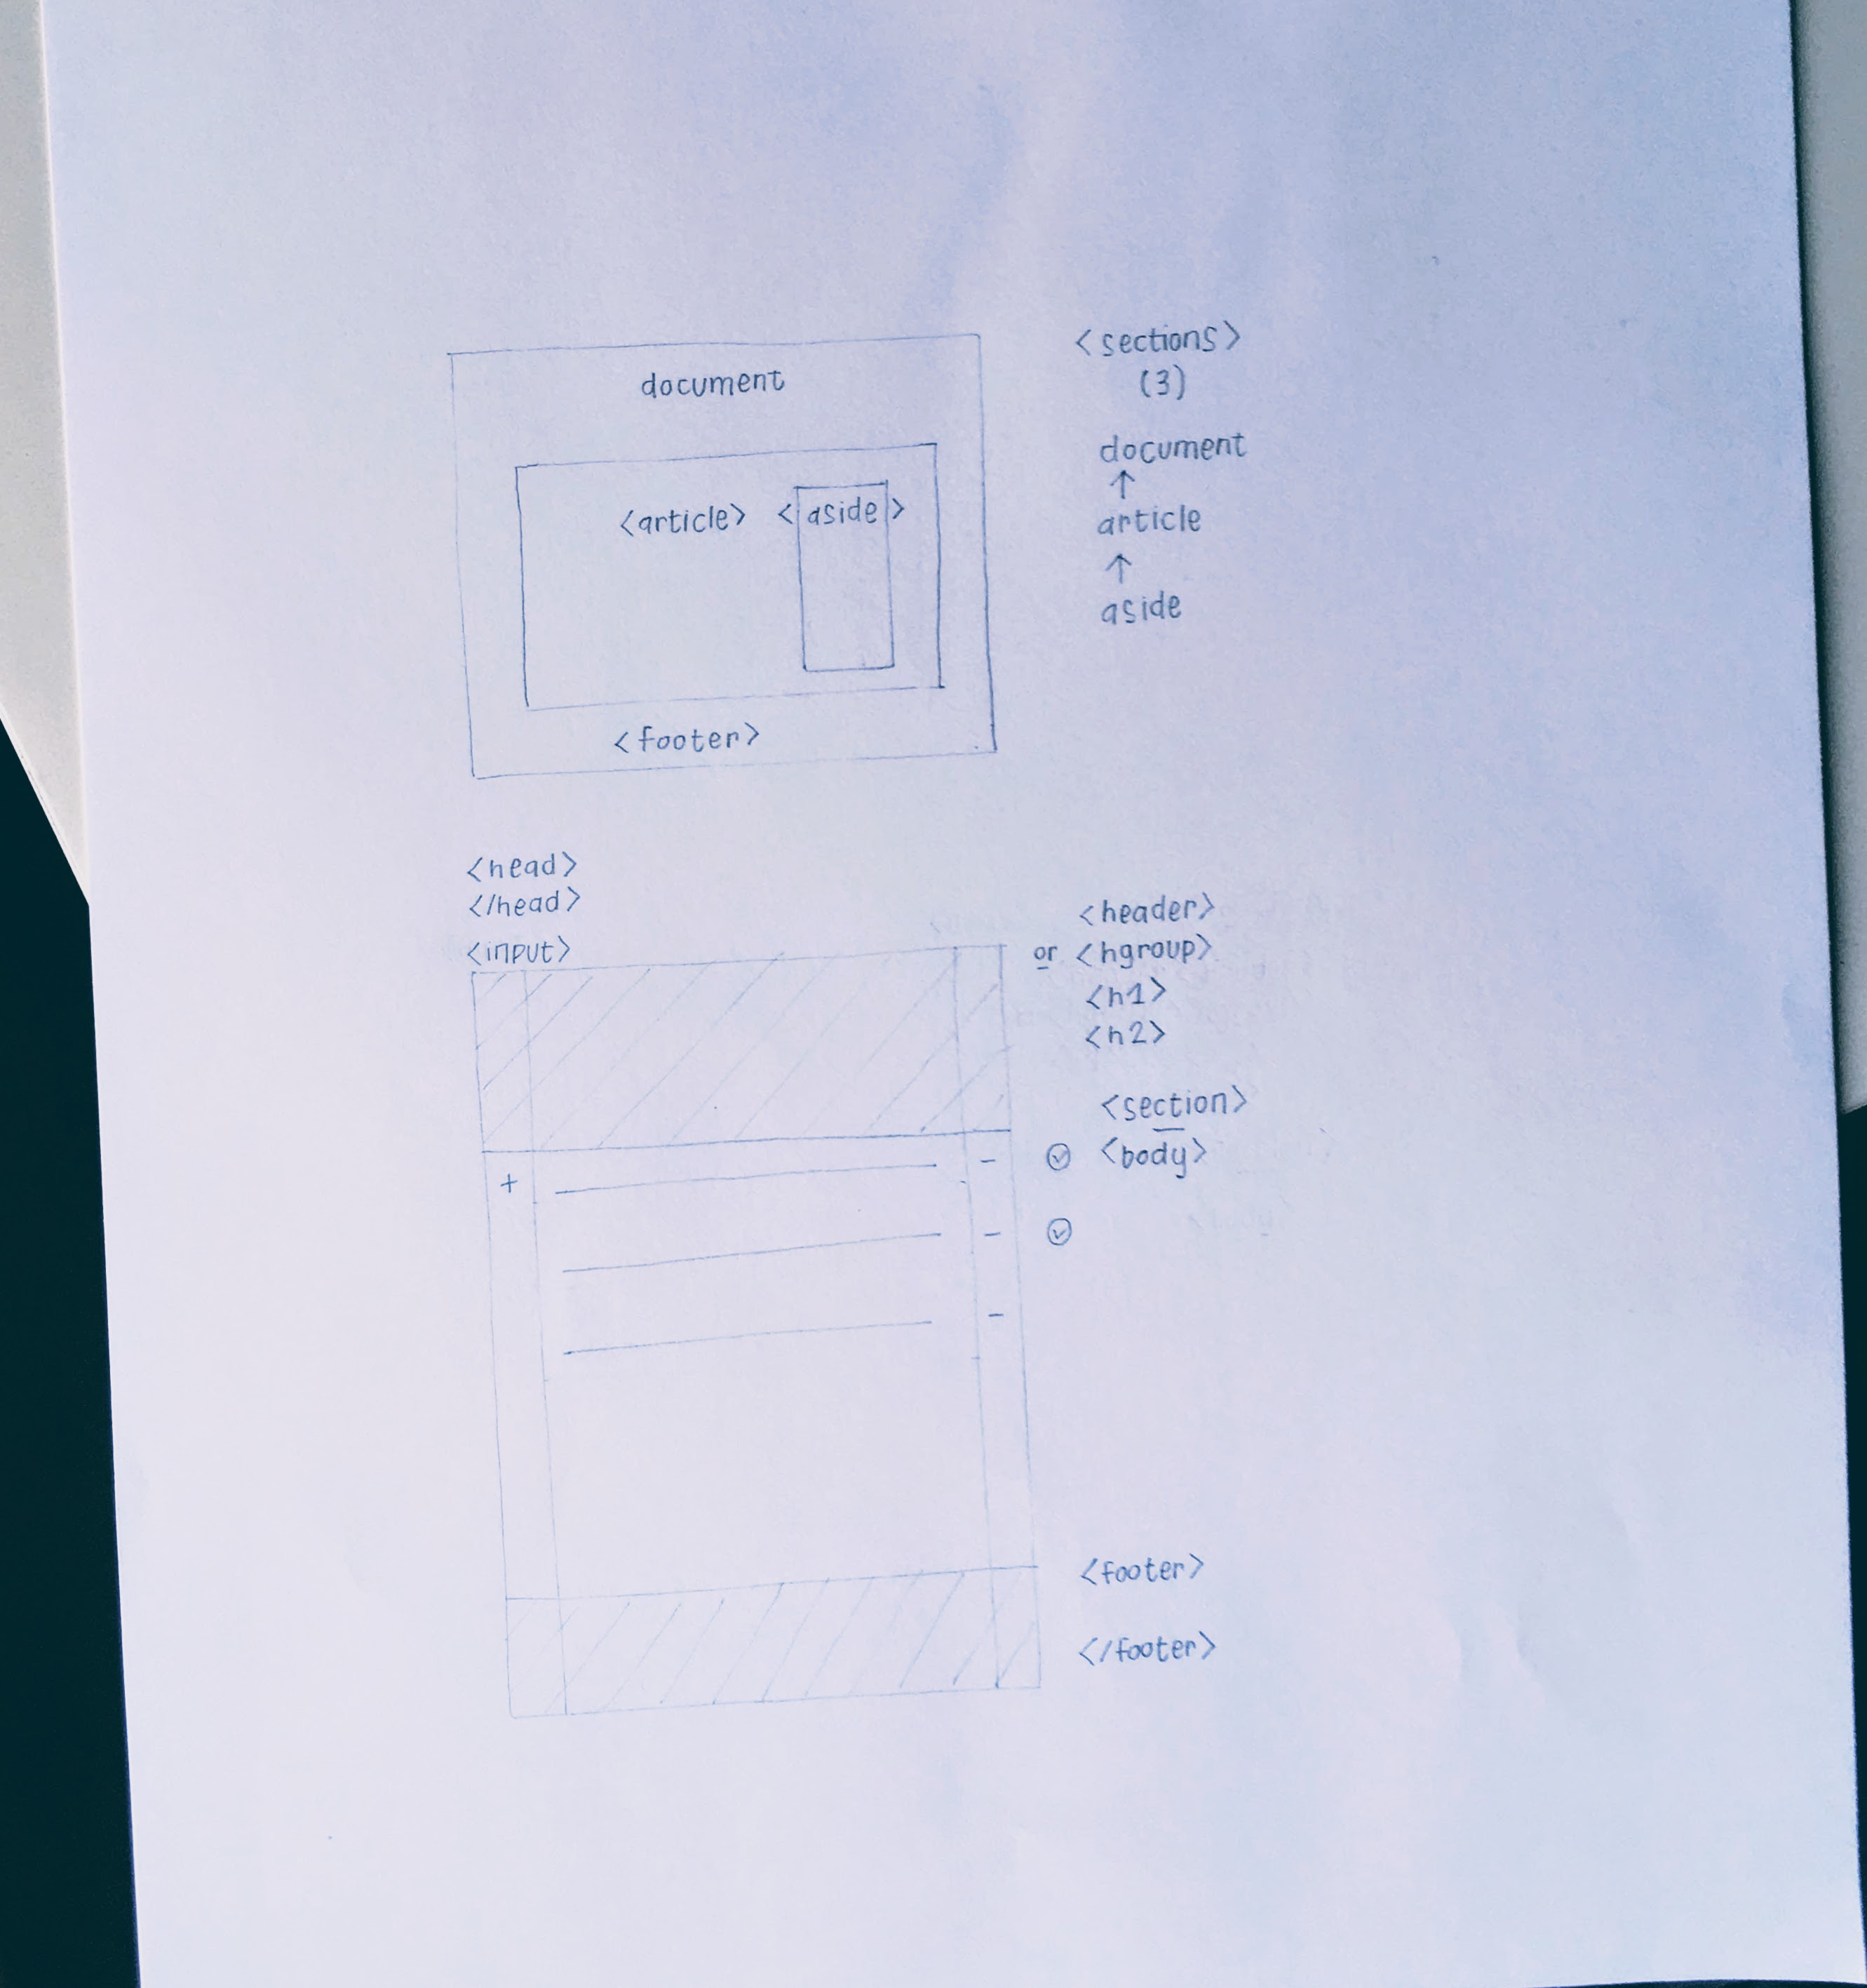 document
<article> <aside>
<footer>
<sections>
(3)
document
↑
article
↑
aside
<head>
</head>
<input>
<header>
or <hgroup>
<h1>
<h2>
<section>
<body>
+
-
-
-
<footer>
</footer>